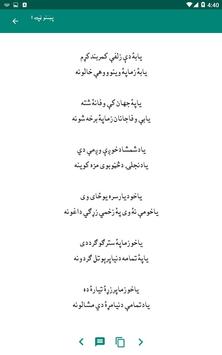 4:40
پښتو ټپه ۱
یا به دې زلفې کمربند کړم
یا به زما په وینو و وهې خالونه
یا په جهان کې وفا نه شته
یا بې وفا جانان زما په برخه شونه
یا د شمشاد خوږې وږمې دي
یا د نجلۍ د ځڼو بوی مزه کوینه
یا خو د یار سره یو ځای وی
یا خو مې نه وی په زخمي زړګي داغونه
یا خو زما په سترګو ګرد دی
یا په تمامه دنیا پرېوتل ګردونه
یا خو زما پر زړه تیاره ده
یا د تمامي دنیا مړه دي مشالونه